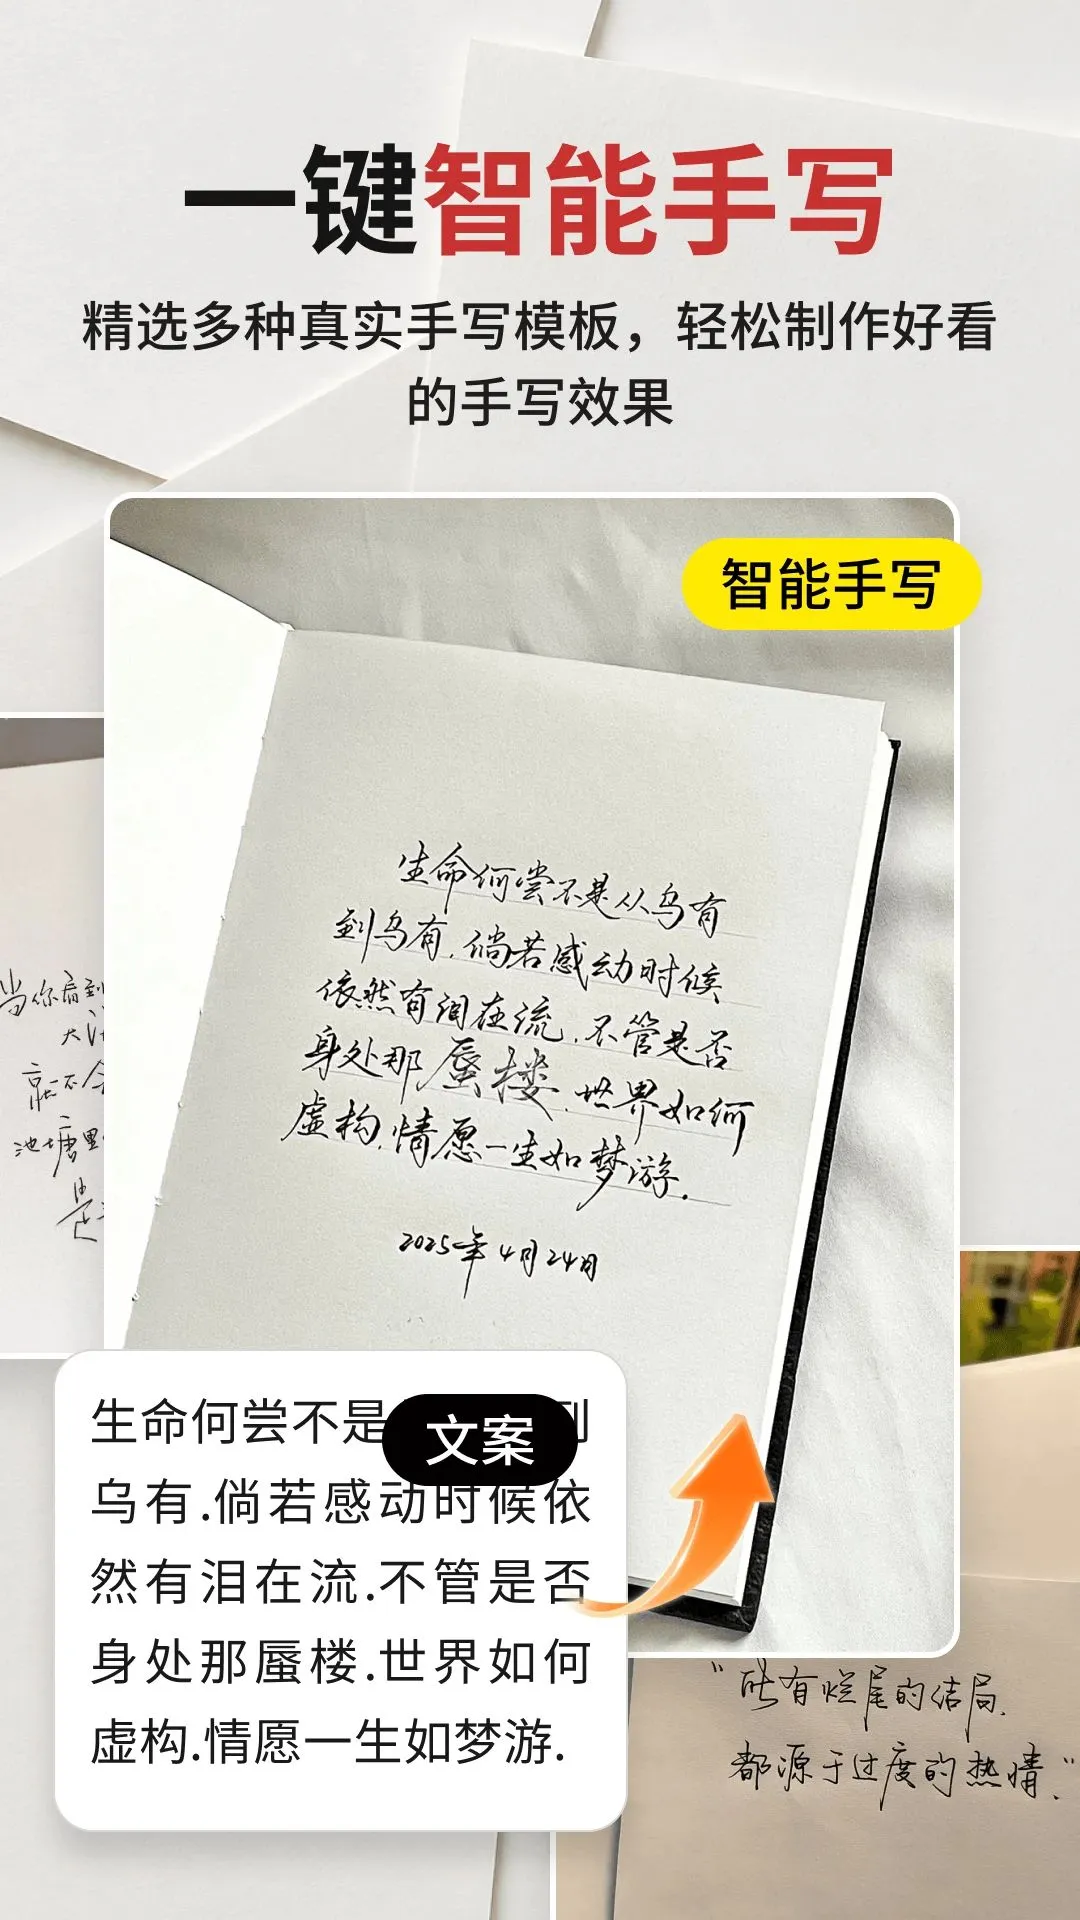 一键智能手写
精选多种真实手写模板，轻松制作好看
的手写效果
智能手写
生命何尝不是从乌有
到乌有.倘若感动时候
依然有泪在流.不管是否
身处那蜃楼.世界如何
虚构.情愿一生如梦游.
2025年4月24日
当你看到
大
就不会
池塘里
是
文案
生命何尝不是 到
乌有.倘若感动时候依
然有泪在流.不管是否
身处那蜃楼.世界如何
虚构.情愿一生如梦游.
"所有烂尾的结局.
都源于过度的热情."